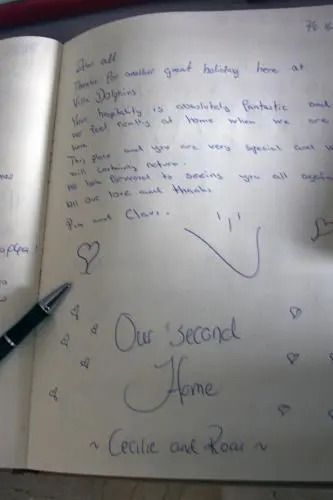 Dear all
Thanks for another great holiday here at
Villa Dolphins.
Your hospitality is absolutely fantastic and
we feel really at home when we are
here.
This place and you are very special and w
will certainly return.
We look forward to seeing you all again
All our love and thanks
and Claus.
Our second
Home
~ Cecilie and ~